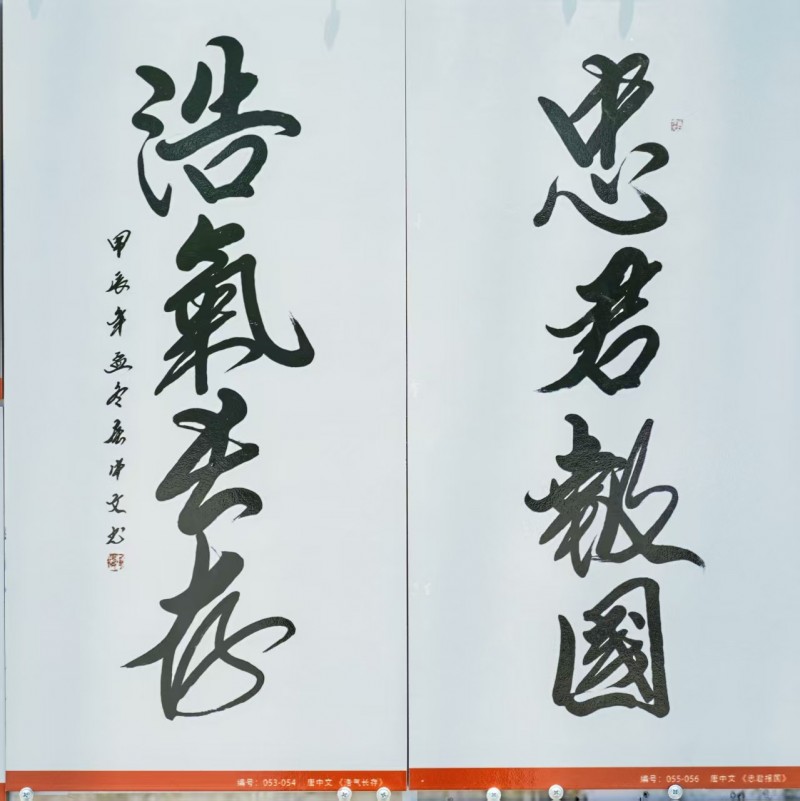 忠君報國
浩氣長存
甲辰年孟冬唐中文书
编号：053-054 唐中文《浩气长存》
编号：055-056 唐中文《忠君报国》